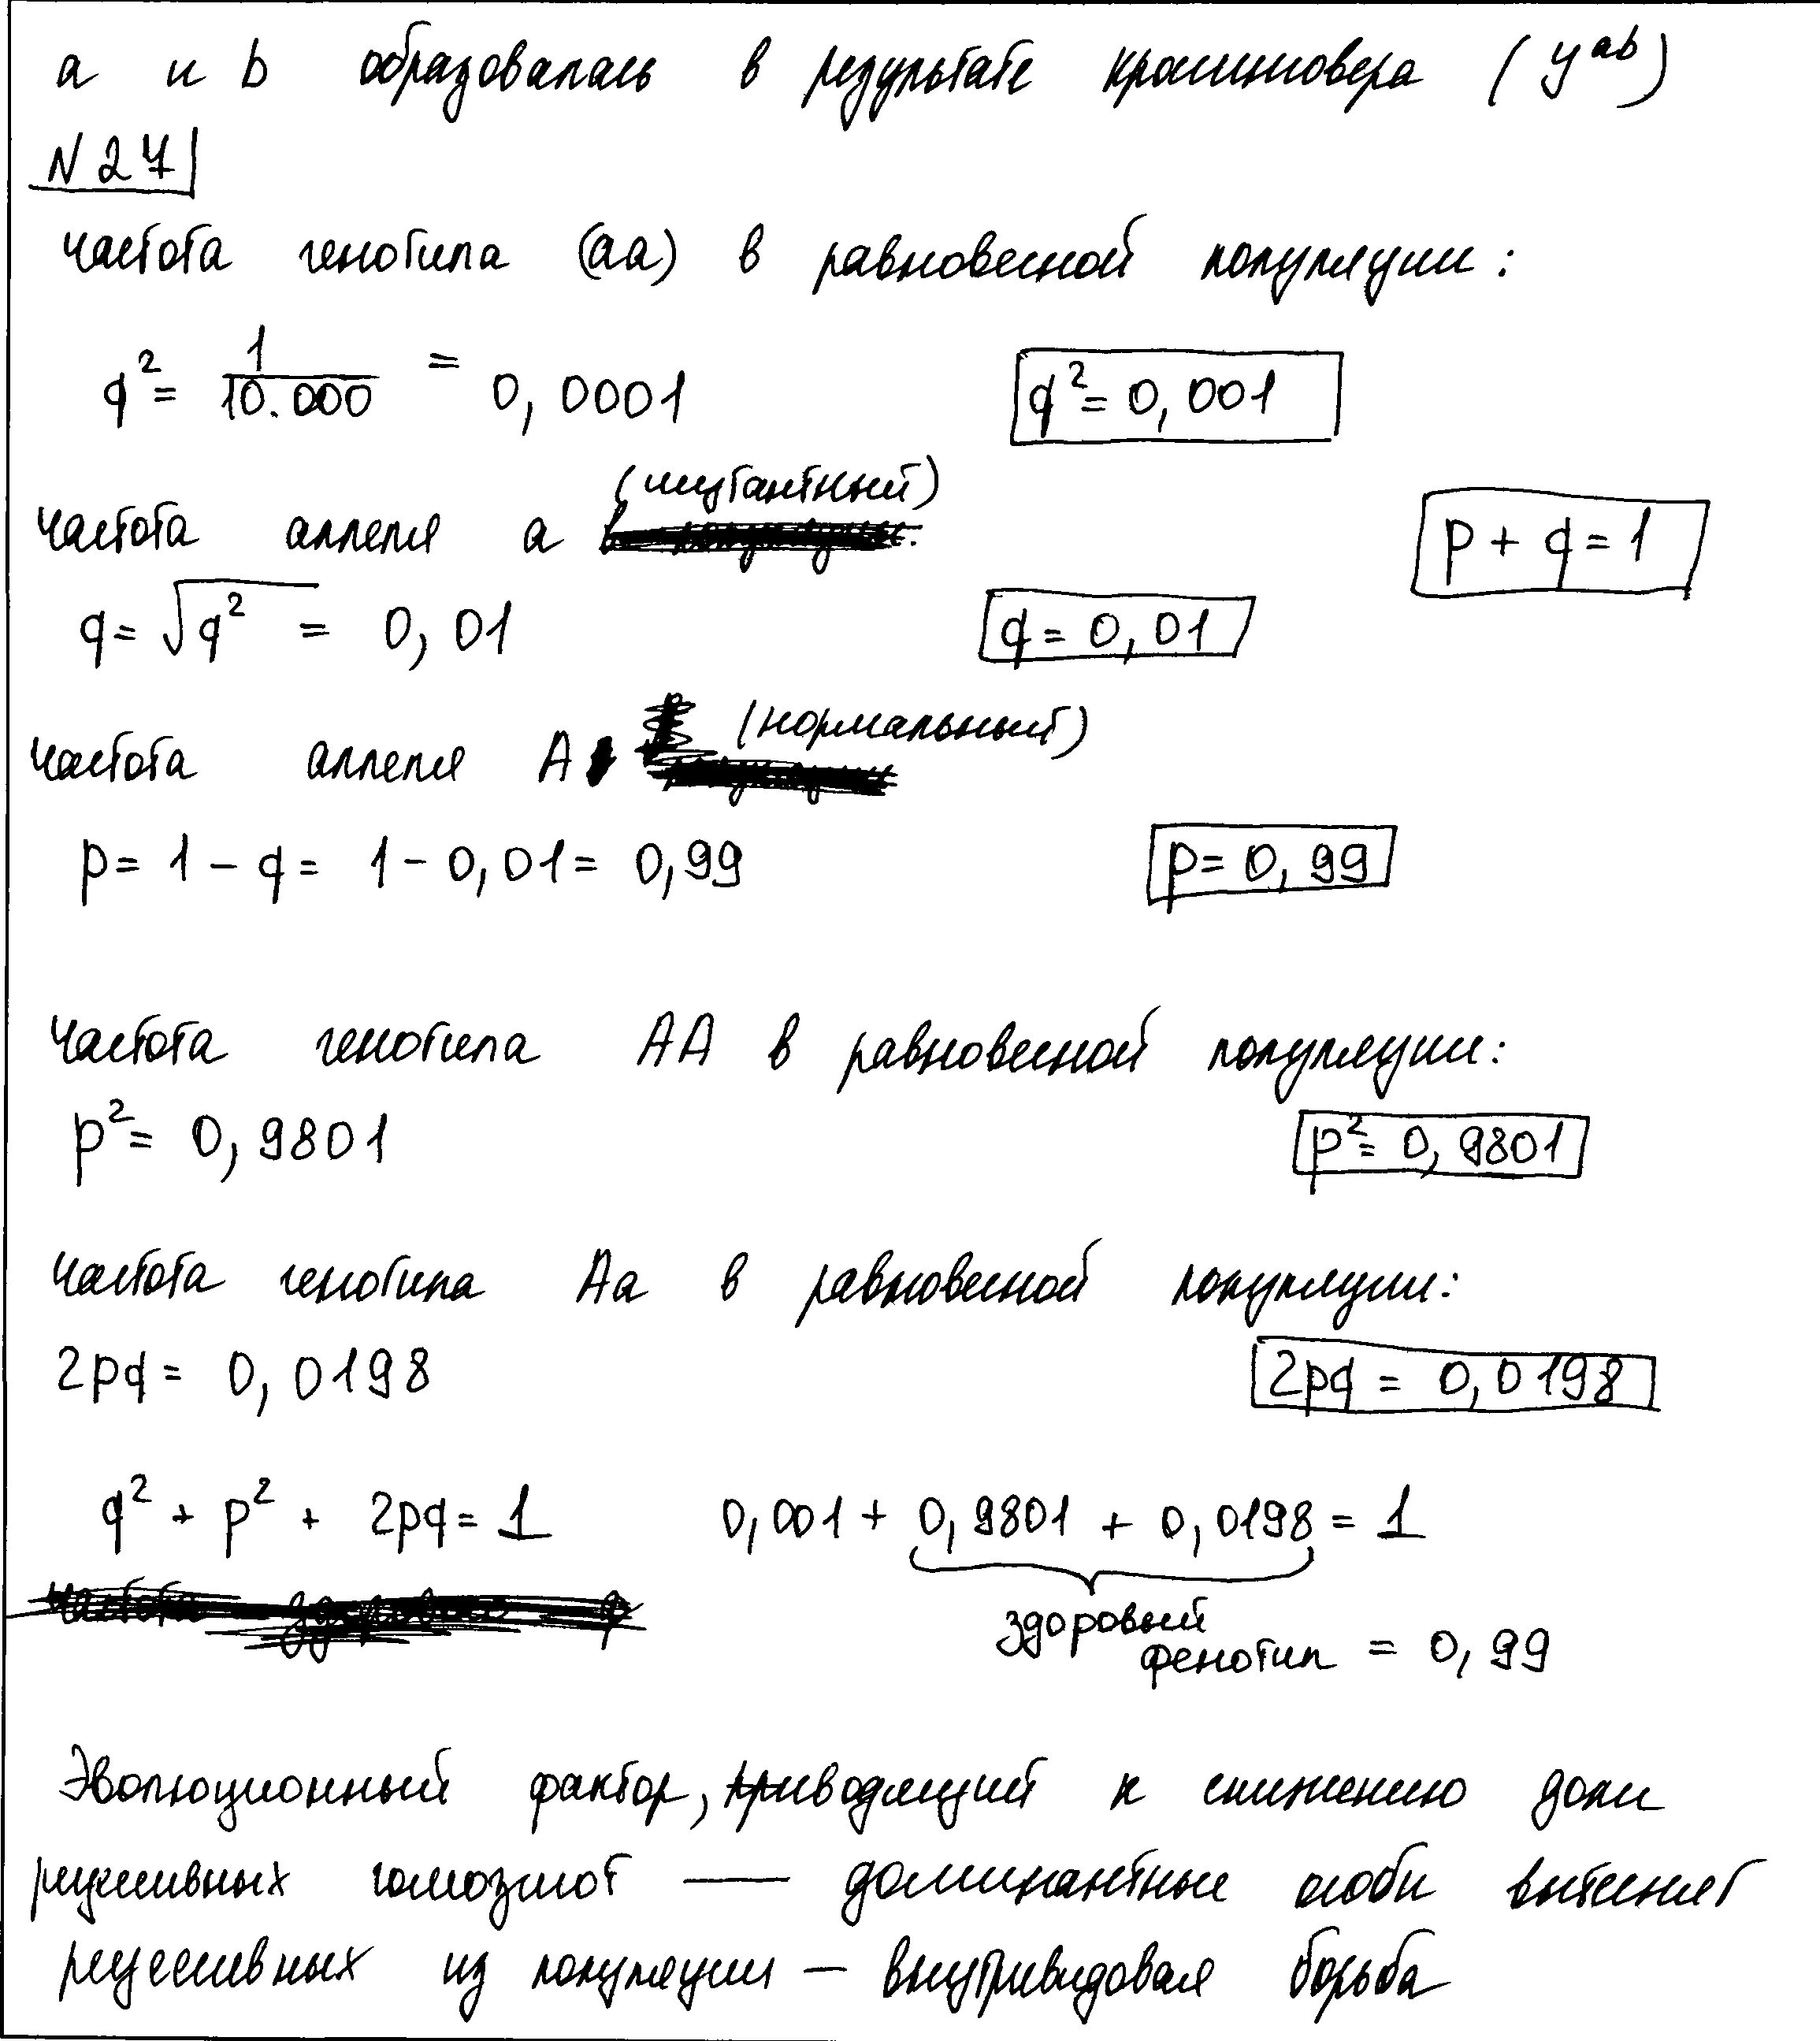 а и b образовалась в результате кроссинговера (Y^ab)
N 27
частота генотипа (аа) в равновесной популяции:
q² = 1/10.000 = 0,0001 q² = 0,001
частота аллеля а (мутантный)
p + q = 1
q = √q² = 0,01 q = 0,01
частота аллеля А (нормальный)
p = 1 - q = 1 - 0,01 = 0,99 p = 0,99
Частота генотипа АА в равновесной популяции:
p² = 0,9801 p² = 0,9801
частота генотипа Аа в равновесной популяции:
2pq = 0,0198 2pq = 0,0198
q² + p² + 2pq = 1 0,001 + 0,9801 + 0,0198 = 1
здоровый
фенотип = 0,99
Эволюционный фактор, приводящий к снижению доли
рецессивных гомозигот — доминантные особи вытеснят
рецессивных из популяции — внутривидовая борьба